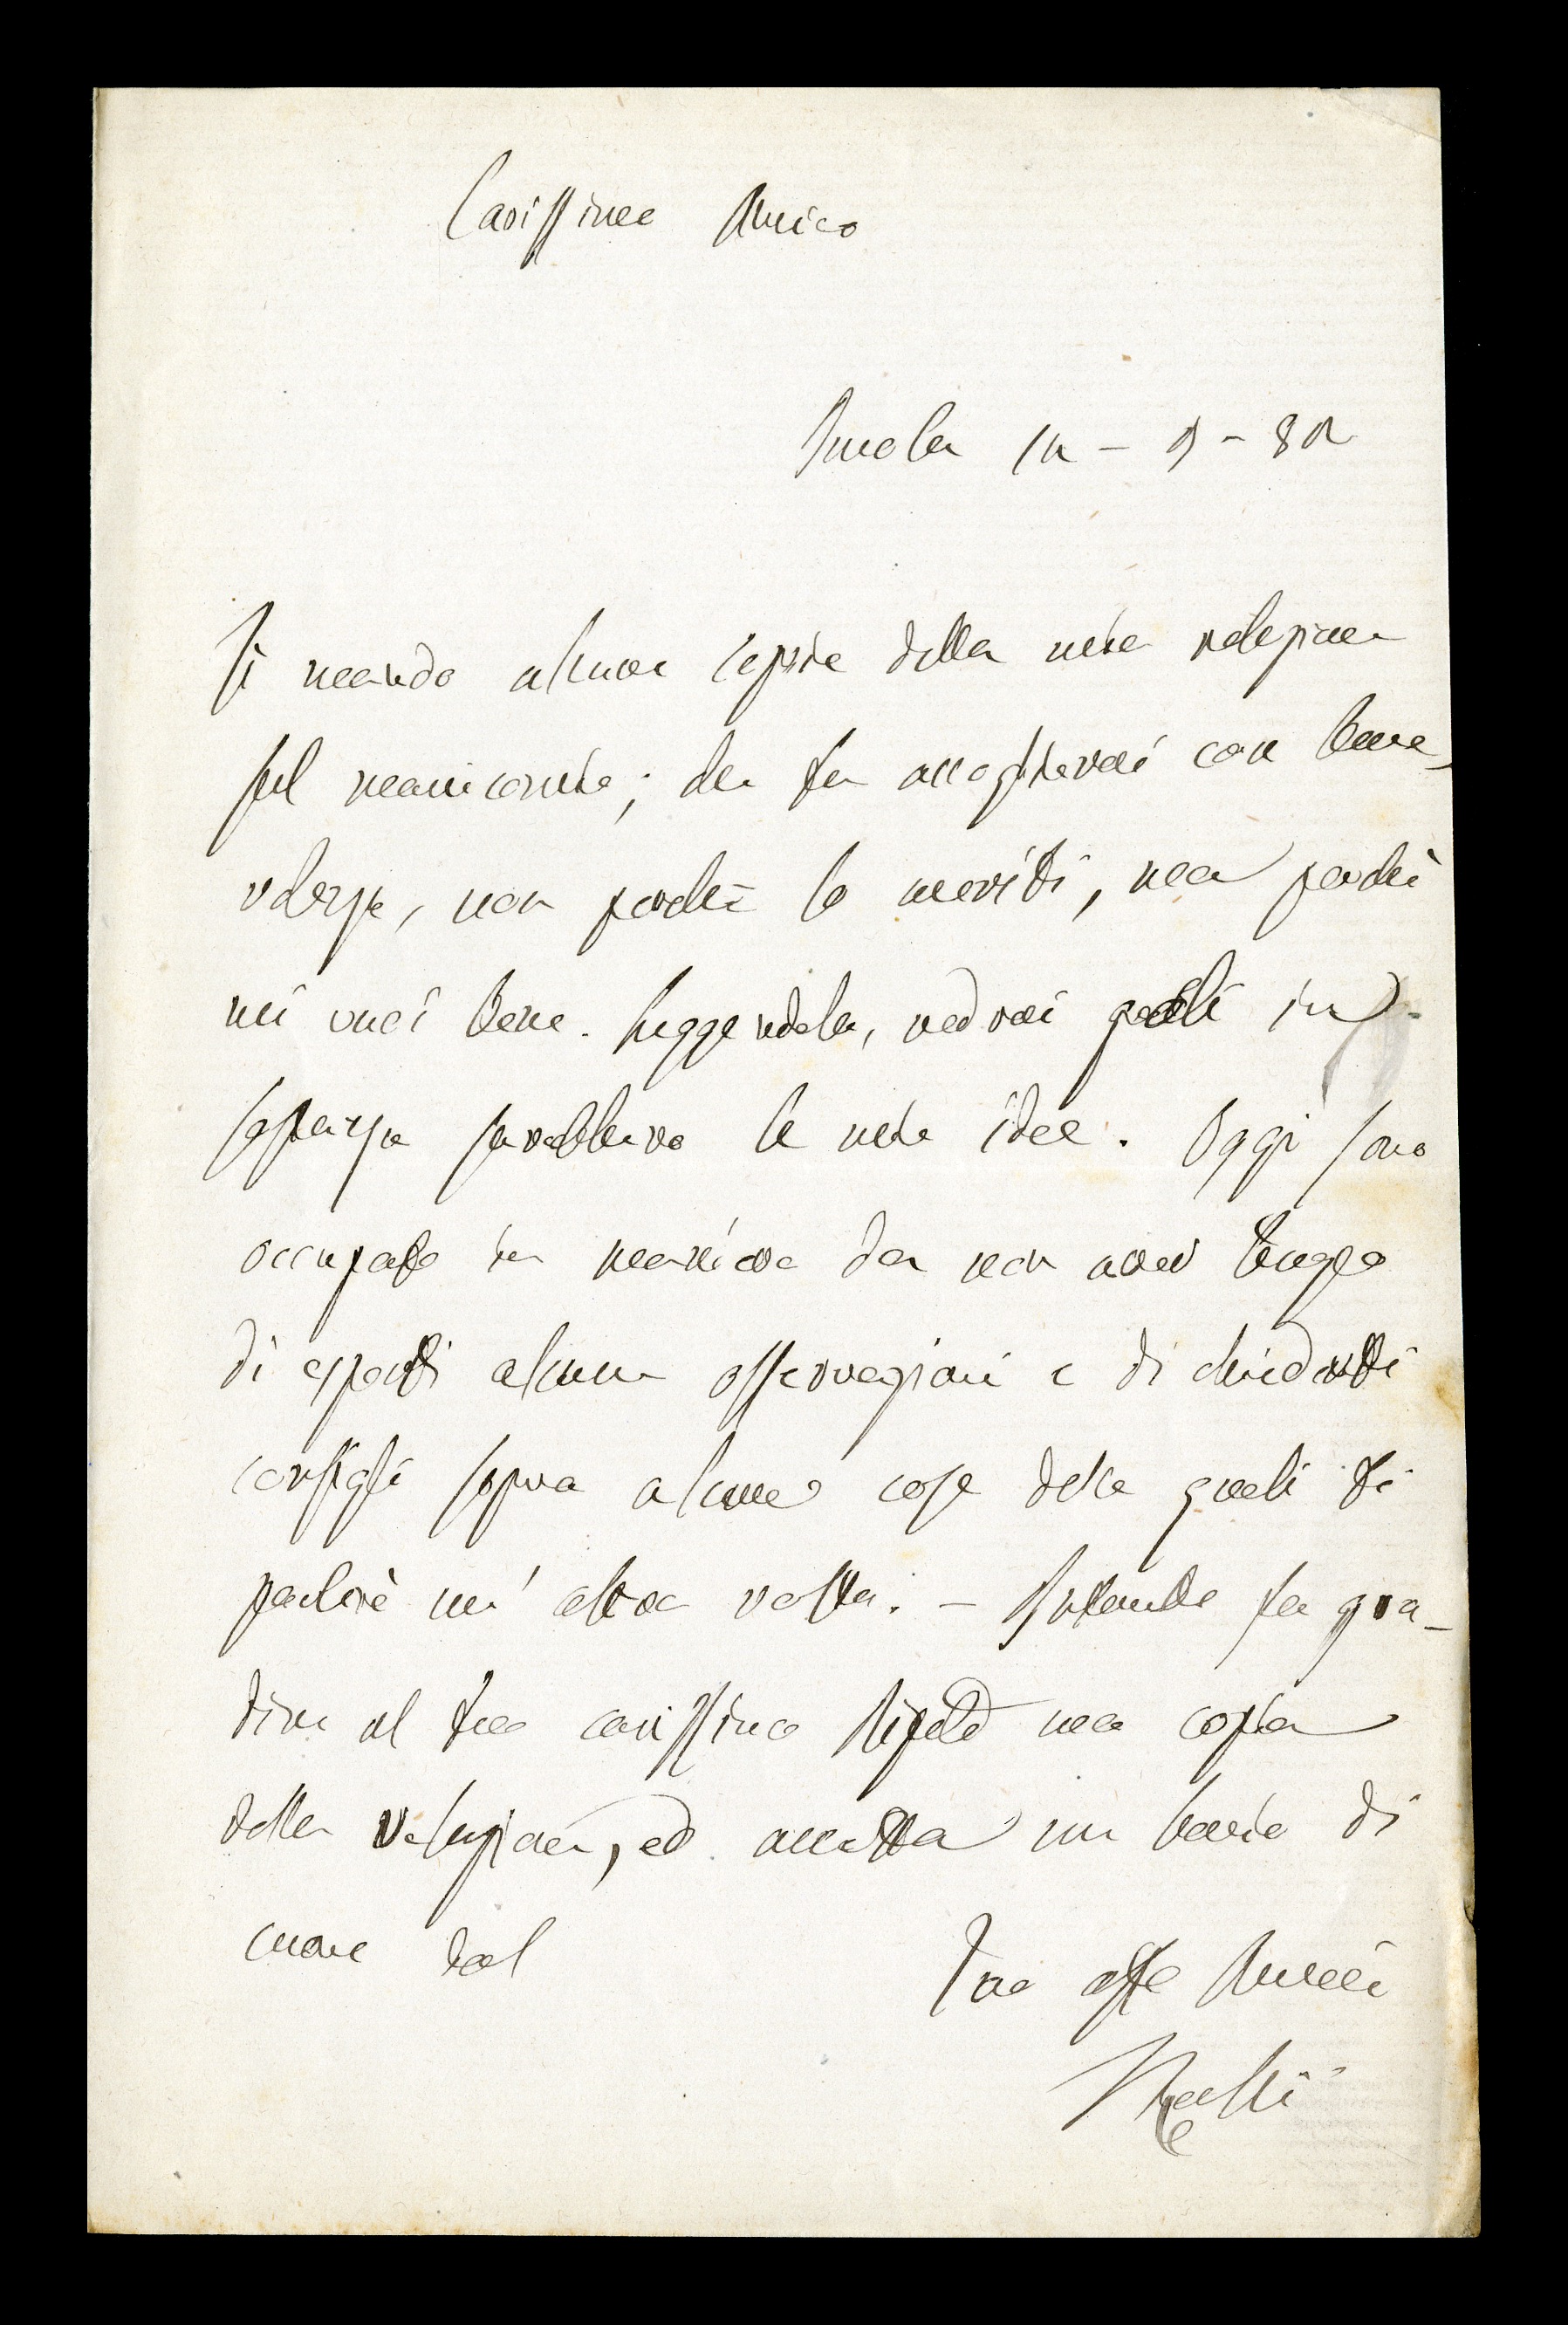 Carissimo Amico
Imola 12 - 9 - 82
Ti mando alcune copie della mia relazione
sul manicomio; la accoglierai con bene-
volenza, non perchè lo meriti, ma perchè
mi vuoi bene. Leggendola, vedrai quali in
sostanza sarebbero le mie idee. Oggi sono
occupato in maniera da non aver tempo
di esporti alcune osservazioni e di chiederti
consigli sopra alcune cose delle quali ti
parlerò un' altra volta. - Intanto fa gra-
dire al tuo carissimo una copia
della relazione, ed accetta un bacio di
cuore dal
Tuo affe Amico